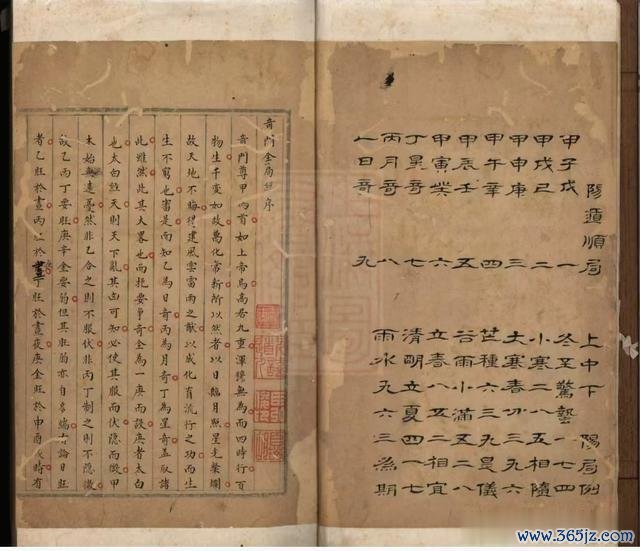 陽遁順局 上中下 陽局例
甲子戊 一 冬至驚蟄一七四
甲戌己 二 小寒二八五相隨
甲申庚 三 大寒春分三九六
甲午辛 四 芒種六三九是儀
甲辰壬 五 谷雨小滿五二八
甲寅癸 六 立春八五二相宜
丁星奇 七 清明立夏四一七
丙月奇 八 雨水九六三為期
乙日奇 九
奇門金局經序
奇門尊甲為首如上帝焉高君九重渾穆無為而四時行百
物生千變如故萬化常新所以然者以日臨月照星光燦爛
故天地不晦得建風雲雷雨之猷以成化育流行之功而生
生不窮也審是而知乙為日奇丙為月奇丁為星奇盖取諸
此雖然此其大畧也而扼要爭奇全為一庚而設庚者太白
也太白經天則天下亂其凶可知必使其服而伏隱而微甲
未始無遠憂然非乙合之則不服伏非丙丁制之則不隱微
故乙丙丁要旺庚辛金要弱但其旺弱亦自各編有論日旺
者乙旺於晝丙於晝丁旺於晝夜庚金旺於申酉時有
www.365jz.com